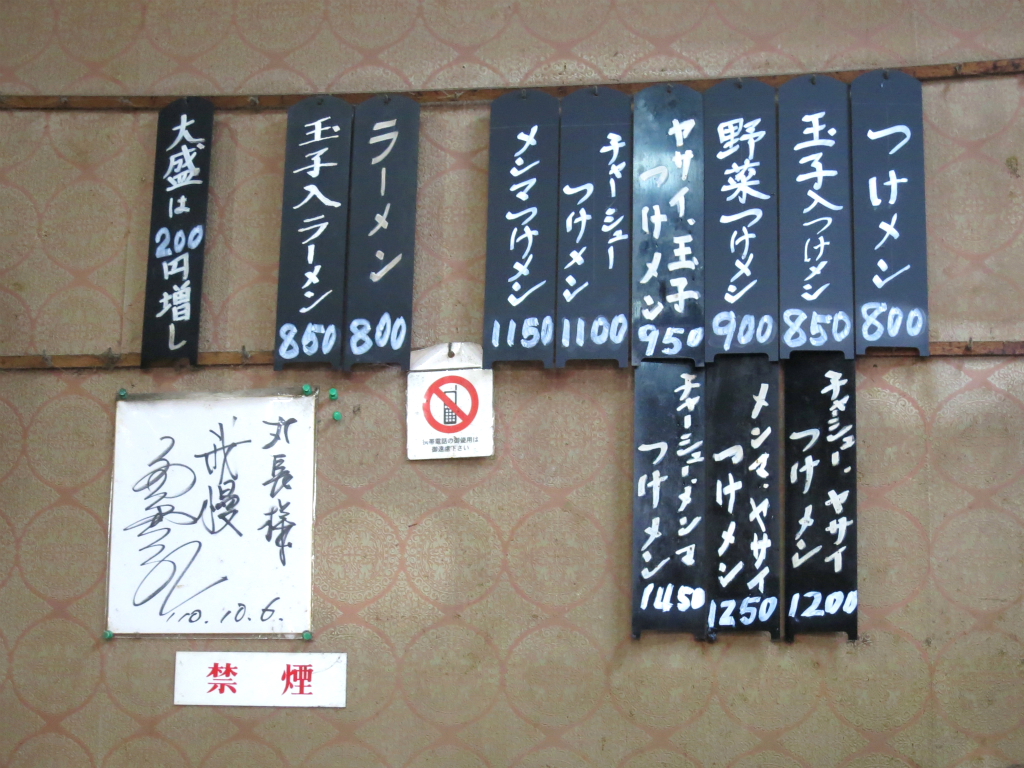 つけメン
800
玉子入つけメン
850
野菜つけメン
900
ヤサイ、玉子
つけメン
950
チャーシュー
つけメン
1100
メンマつけメン
1150
ラーメン
800
玉子入ラーメン
850
大盛は
200円増し
チャーシュー、ヤサイ
つけメン
1200
メンマ、ヤサイ
つけメン
1250
チャーシュー・メンマ
つけメン
1450
携帯電話の御使用は
御遠慮下さい
丸長様
我慢
'10.10.6.
禁煙